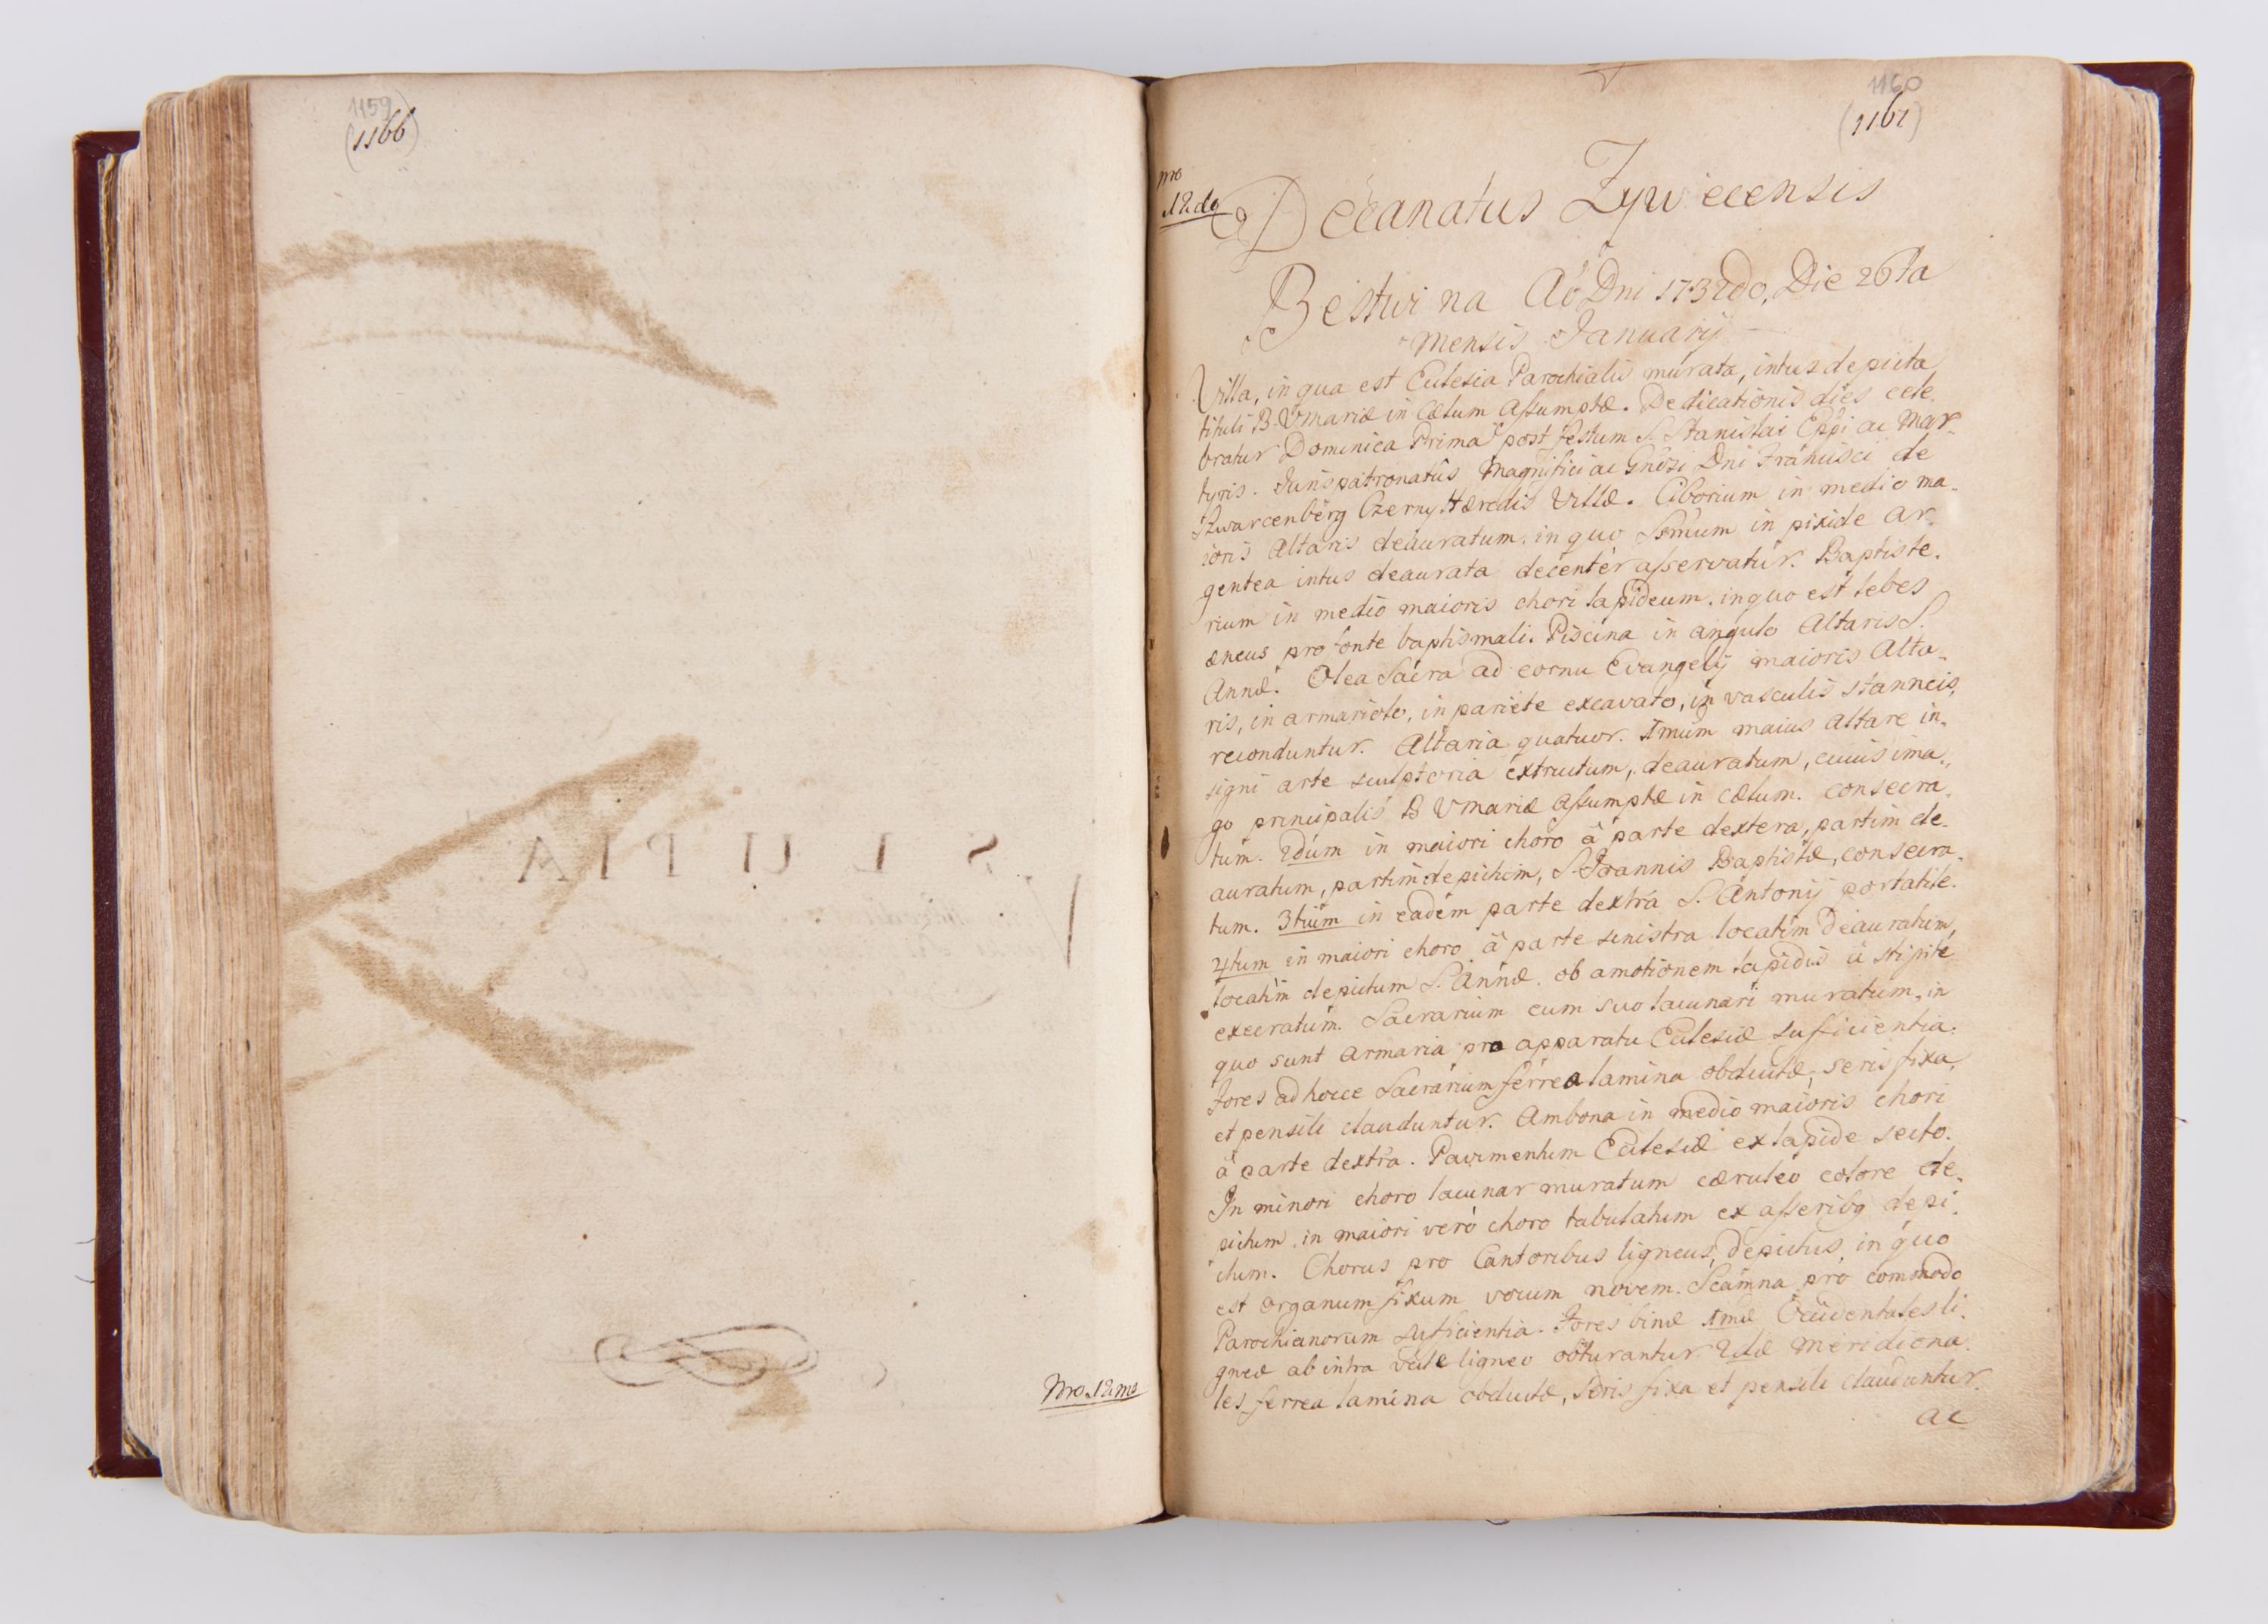 1159
(1166)
SLUPIA
Nro 12mo
1160
(1161)
nro
12do
Decanatus Zywecensis
Bestwina Aõ Dni 1732do, Die 26ta
Mensis Januarij
Villa, in qua est Eclesia Parochialis murata, intus depicta
tituli B. VMariæ in Cælum Assumptæ. Dedicationis dies cele.
bratur Dominica Prima post festum S. Stanislai Eppi ac Mar-
tyris. Juris patronatûs Magnifici ac Gnõsi Dni Francisci de
Szwarcenberg Czerny Hæredis Villæ. Ciborium in medio ma-
ioris Altaris deauratum. in quo SSmum in pixide ar-
gentea intus deaurata decentèr asservatur. Baptiste.
rium in medio maioris chori lapideum. in quo est lebes
æneus pro fonte baptismali. Piscina in angulo Altaris S.
Annæ. Olea Sacra ad cornu Evangelij maioris Alta-
ris, in armariolo, in pariete excavato, in vasculis stanneis,
reconduntur. Altaria quatuor. 1mum maius Altare in-
signi arte sculptoria extructum, deauratum, cuius ima-
go principalis B VMariæ Assumptæ in Cælum. consecra-
tum. 2dum in maiori choro â parte dextera, partim de-
auratum, partim depictum, S. Joannis Baptistæ, consecra-
tum. 3tium in eadem parte dextra S. Antonij portatile.
4tum in maiori choro â parte sinistra locatim deauratum,
locatim depictum S. Annæ. ob amotionem lapidis â stipite
execratum. Sacrarium cum suo lacunari muratum, in
quo sunt armaria pro apparatu Eclesiæ suficientia.
Fores ad hocce Sacrarium ferrea lamina obductæ, seris fixa,
et pensili clauduntur. Ambona in medio maioris chori
â parte dextra. Pavimentum Eclesiæ ex lapide secto.
In minori choro lacunar muratum cæruleo colore de-
pictum. in maiori verò choro tabulatum ex asseribq depi-
ctum. Chorus pro Cantoribus ligneus, depictus, in quo
est organum fixum vocum novem. Scamna pro commodo
Parochianorum suficientia. Fores binæ 1mæ Occidentales li-
gneæ ab intra vecte ligneo obturantur 2dæ Meridiona-
les ferrea lamina obductæ, seris fixa et pensili clauduntur.
ac